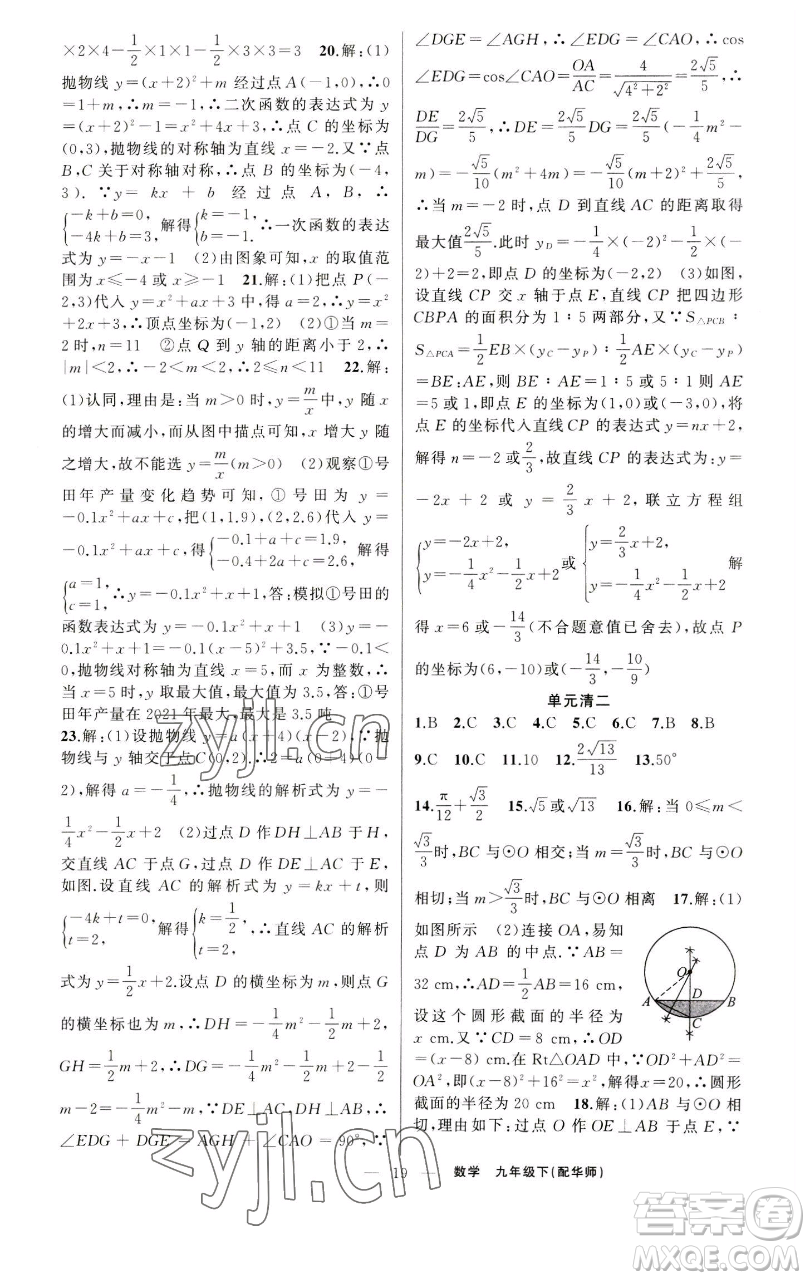 ×2×4−1/2×1×1−1/2×3×3=3 20.解:(1)
抛物线 y=(x+2)²+m 经过点 A(−1,0),∴0
=1+m,∴m=−1,∴二次函数的表达式为 y
=(x+2)²−1=x²+4x+3,∴点 C 的坐标为
(0,3),抛物线的对称轴为直线 x=−2.又∵点
B,C 关于对称轴对称,∴点 B 的坐标为(−4,
3). ∵y= kx + b 经过点 A, B, ∴
{−k+b=0, −4k+b=3, 解得{k=−1, b=−1. ∴一次函数的表达
式为 y=−x−1 (2)由图象可知,x 的取值范
围为x≤−4 或x≥−1 21.解:(1)把点 P(−
2,3)代入 y=x²+ax+3 中,∴a=2,∴y=x²
+2x+3,∴顶点坐标为(−1,2) (2)①当 m=
2时,n=11 ②点 Q 到 y 轴的距离小于 2,∴
|m|<2,∴−2<m<2,∴2≤n<11 22.解:
(1)认同,理由是:当 m>0 时,y=m/x中,y 随 x
的增大而减小,而从图中描点可知,x 增大 y 随
之增大,故不能选 y=m/x(m>0) (2)观察①号
田年产量变化趋势可知,①号田为 y=
−0.1x²+ax+c,把(1,1.9),(2,2.6)代入 y=
−0.1x²+ax+c,得{−0.1+a+c=1.9, −0.4+2a+c=2.6, 解得
{a=1, c=1, ∴y=−0.1x²+x+1,答:模拟①号田的
函数表达式为 y=−0.1x²+x+1 (3)由①可
知,y=−0.1x²+x+1=−0.1(x−5)²+3.5,∵−0.1<
0,抛物线对称轴为直线 x=5,而 x 为整数,∴
当 x=5 时,y 取最大值,最大值为 3.5,∴①号
田年产量在 2021 年最大,最大是 3.5 吨
23.解:(1)设抛物线 y=a(x+4)(x−2),∵抛
物线与 y 轴交于点 C(0,2),∴2=a(0+4)(0−
2),解得 a=−1/4,∴抛物线的解析式为 y=−
1/4x²−1/2x+2 (2)过点 D 作 DH⊥AB 于 H,
交直线 AC 于点 G,过点 D 作 DE⊥AC 于 E,
如图.设直线 AC 的解析式为 y=kx+t,则
{−4k+t=0, t=2, 解得{k=1/2, t=2, ∴直线 AC 的解析
式为 y=1/2x+2.设点 D 的横坐标为 m,则点 G
的横坐标也为 m,∴DH=−1/4m²−1/2m+2,
GH=1/2m+2,∴DG=−1/4m²−1/2m+2−1/2
m−2=−1/4m²−m,∵DE⊥AC,DH⊥AB,∴
∠EDG + DGE = AGH + ∠CAO = 90°, ∵
∠DGE=∠AGH,∴∠EDG=∠CAO,∴cos
∠EDG=cos∠CAO=OA/AC=4/√(4²+2²)=2√5/5,∴
DE/DG=2√5/5,∴DE=2√5/5DG=2√5/5(−1/4m²−
m)=−√5/10(m²+4m)=−√5/10(m+2)²+2√5/5,
∴当 m=−2 时,点 D 到直线 AC 的距离取得
最大值2√5/5.此时 y_D=−1/4×(−2)²−1/2×(−
2)+2=2,即点 D 的坐标为(−2,2) (3)如图,
设直线 CP 交 x 轴于点 E,直线 CP 把四边形
CBPA 的面积分为 1∶5 两部分,又∵S△PCB∶
S△PCA=1/2EB×(y_C−y_P)∶1/2AE×(y_C−y_P)=
BE∶AE,则 BE∶AE=1∶5 或 5∶1 则 AE=
5或1,即点 E 的坐标为(1,0)或(−3,0),将
点 E 的坐标代入直线 CP 的表达式 y=nx+2,
解得 n=−2 或2/3,故直线 CP 的表达式为 y=
−2x + 2 或 y = 2/3 x + 2, 联 立 方 程 组
{y=−2x+2, y=−1/4x²−1/2x+2 或 {y=2/3x+2, y=−1/4x²−1/2x+2, 解
得 x=6 或−14/3(不合题意值已舍去),故点 P
的坐标为(6,−10)或(−14/3,−10/9)
单元清二
1.B 2.C 3.C 4.C 5.C 6.B 7.B 8.B
9.C 10.C 11.10 12.2√13/13 13.50°
14.π/12+√3/2 15.√5或√13 16.解:当 0≤m<
√3/3时,BC 与⊙O 相交;当 m=√3/3时,BC 与⊙O
相切;当 m>√3/3时,BC 与⊙O 相离 17.解:(1)
如图所示 (2)连接 OA,易知
点 D 为 AB 的中点.∵AB=
32 cm,∴AD=1/2AB=16 cm,
设这个圆形截面的半径为
x cm.又∵CD=8 cm,∴OD
=(x−8)cm,在 Rt△OAD 中,∵OD²+AD²=
OA²,即(x−8)²+16²=x²,解得x=20,∴圆形
截面的半径为 20 cm 18.解:(1)AB 与⊙O 相切,
理由如下:过点 O 作 OE⊥AB 于点 E,∵
O
D
A
B
C
— 19 — 数学 九年级下(配华师)
zyjl.cn
zyjl.cn
答案卷
MXQE.COM